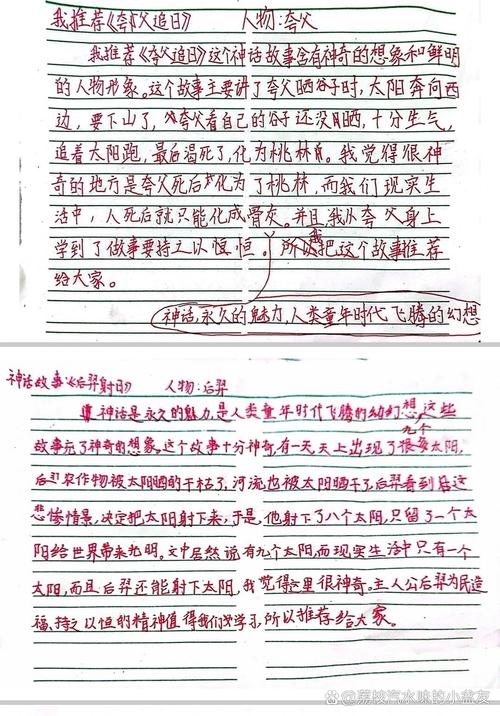 我推荐《夸父追日》 人物:夸父
我推荐《夸父追日》这个神话故事含有神奇的想象和鲜明
的人物形象。这个故事主要讲了夸父晒谷子时,太阳奔向西
边,要下山了,夸父看自己的谷子还没晒,十分生气,
追着太阳跑,最后渴死了,化为桃林。我觉得很神
奇的地方是夸父死后化为了桃林,而我们现实生
活中,人死后就只能化成骨灰。并且,我从夸父身上
学到了做事要持之以恒。所以我把这个故事推荐
给大家。
神话,永久的魅力,人类童年时代飞腾的幻想
神话故事《后羿射日》 人物:后羿
神话是永久的魅力,是人类童年时代飞腾的幻想,这些
故事充了神奇的想象。这个故事十分神奇,有一天天上出现了九个太阳,
农作物被太阳晒的干枯了,河流也被太阳晒干了,后羿看到这
悲惨情景,决定把太阳射下来,于是,他射下了八个太阳,只留了一个太
阳给世界带来光明。文中居然说有九个太阳,而现实生活中只有一个
太阳,而且后羿还能射下太阳,我觉得这里很神奇。主人公后羿为民造
福、持之以恒的精神值得我们学习,所以推荐给大家。
@荔枝汽水味的小盆友